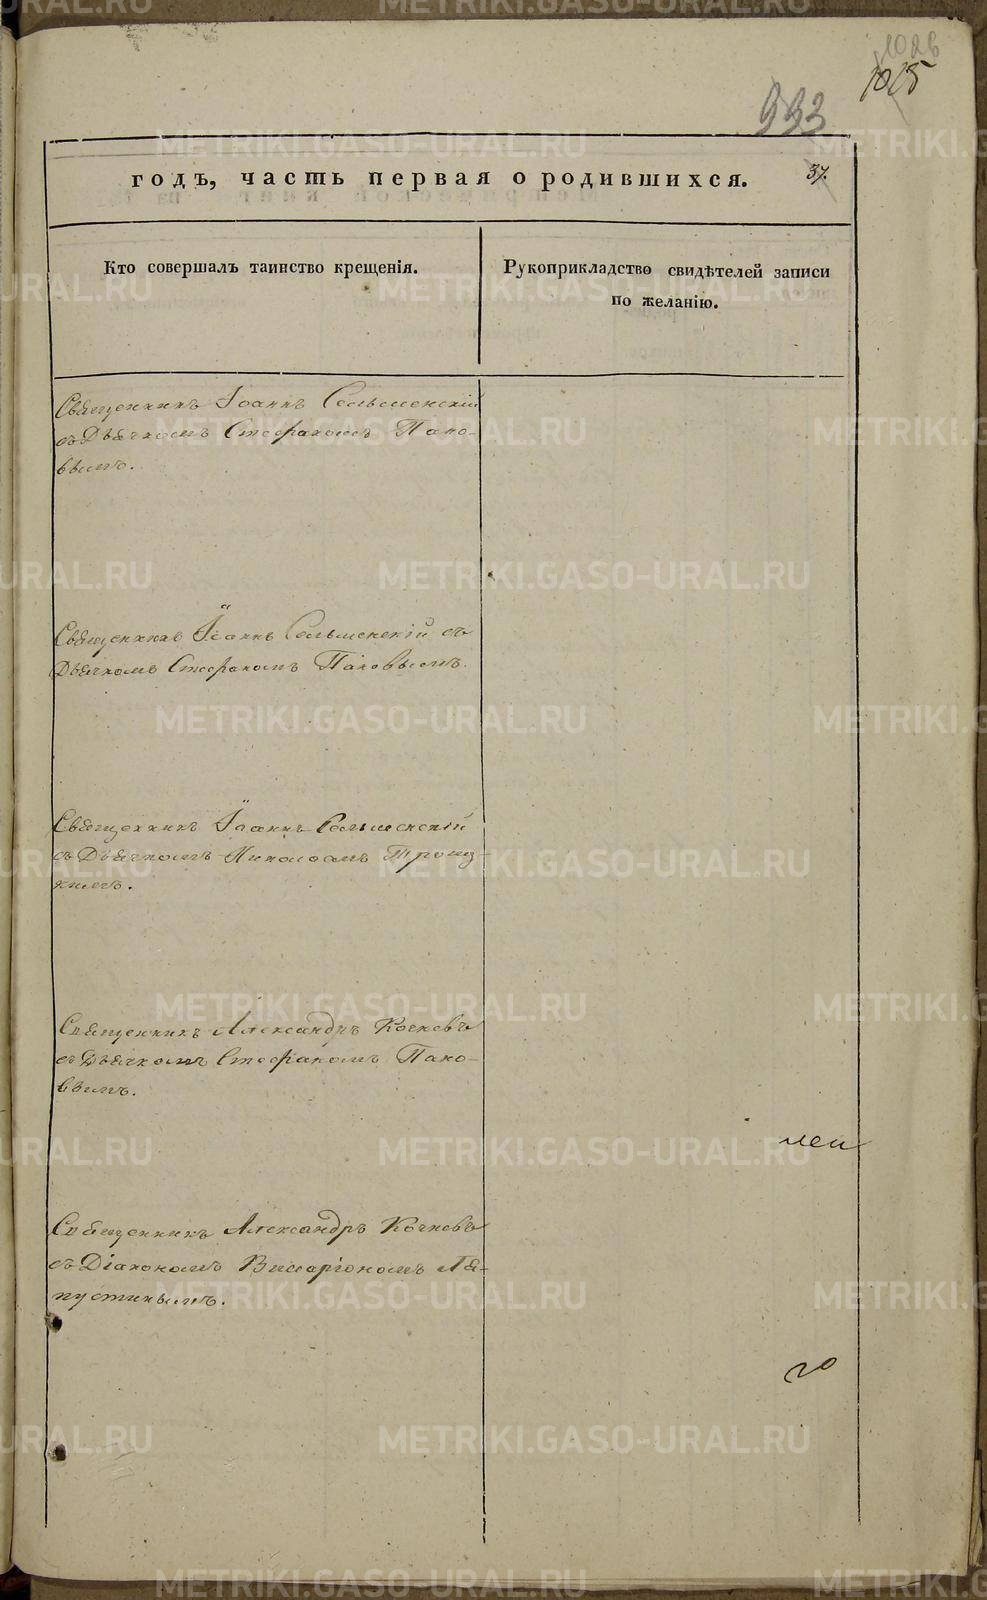 1026
1015
993
годъ, часть первая о родившихся.
37.
Кто совершалъ таинство крещенія.
Рукоприкладство свидѣтелей записи
по желанію.
Священникъ Іоаннъ Сельменскій
съ Дьячкомъ Стефаномъ Пано-
вымъ.
Священникъ Іоаннъ Сельменскій съ
Дьячкомъ Стефаномъ Пановымъ.
Священникъ Іоаннъ Сельменскій
съ Дьячкомъ Николаемъ Троиц-
кимъ.
Священникъ Александръ Кочневъ
съ Дьячкомъ Стефаномъ Пано-
вымъ.
Священникъ Александръ Кочневъ
съ Діакономъ Виссаріономъ Ля-
пустинымъ.
METRIKI.GASO-URAL.RU